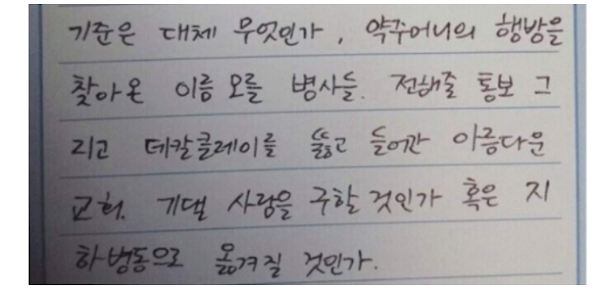 기준은 대체 무엇인가, 약주어니의 행방을
찾아온 이름 모를 병사들. 전해줄 통보 그
리고 데칼클레이를 뚫고 들어간 아름다운
교회. 기댈 사람을 구할 것인가 혹은 지
하병동으로 옮겨질 것인가.